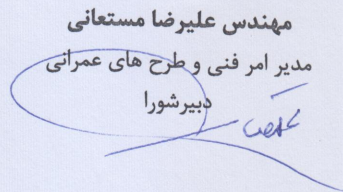 مهندس علیرضا مستعانی
مدیر امر فنی و طرح های عمرانی
دبیرشورا